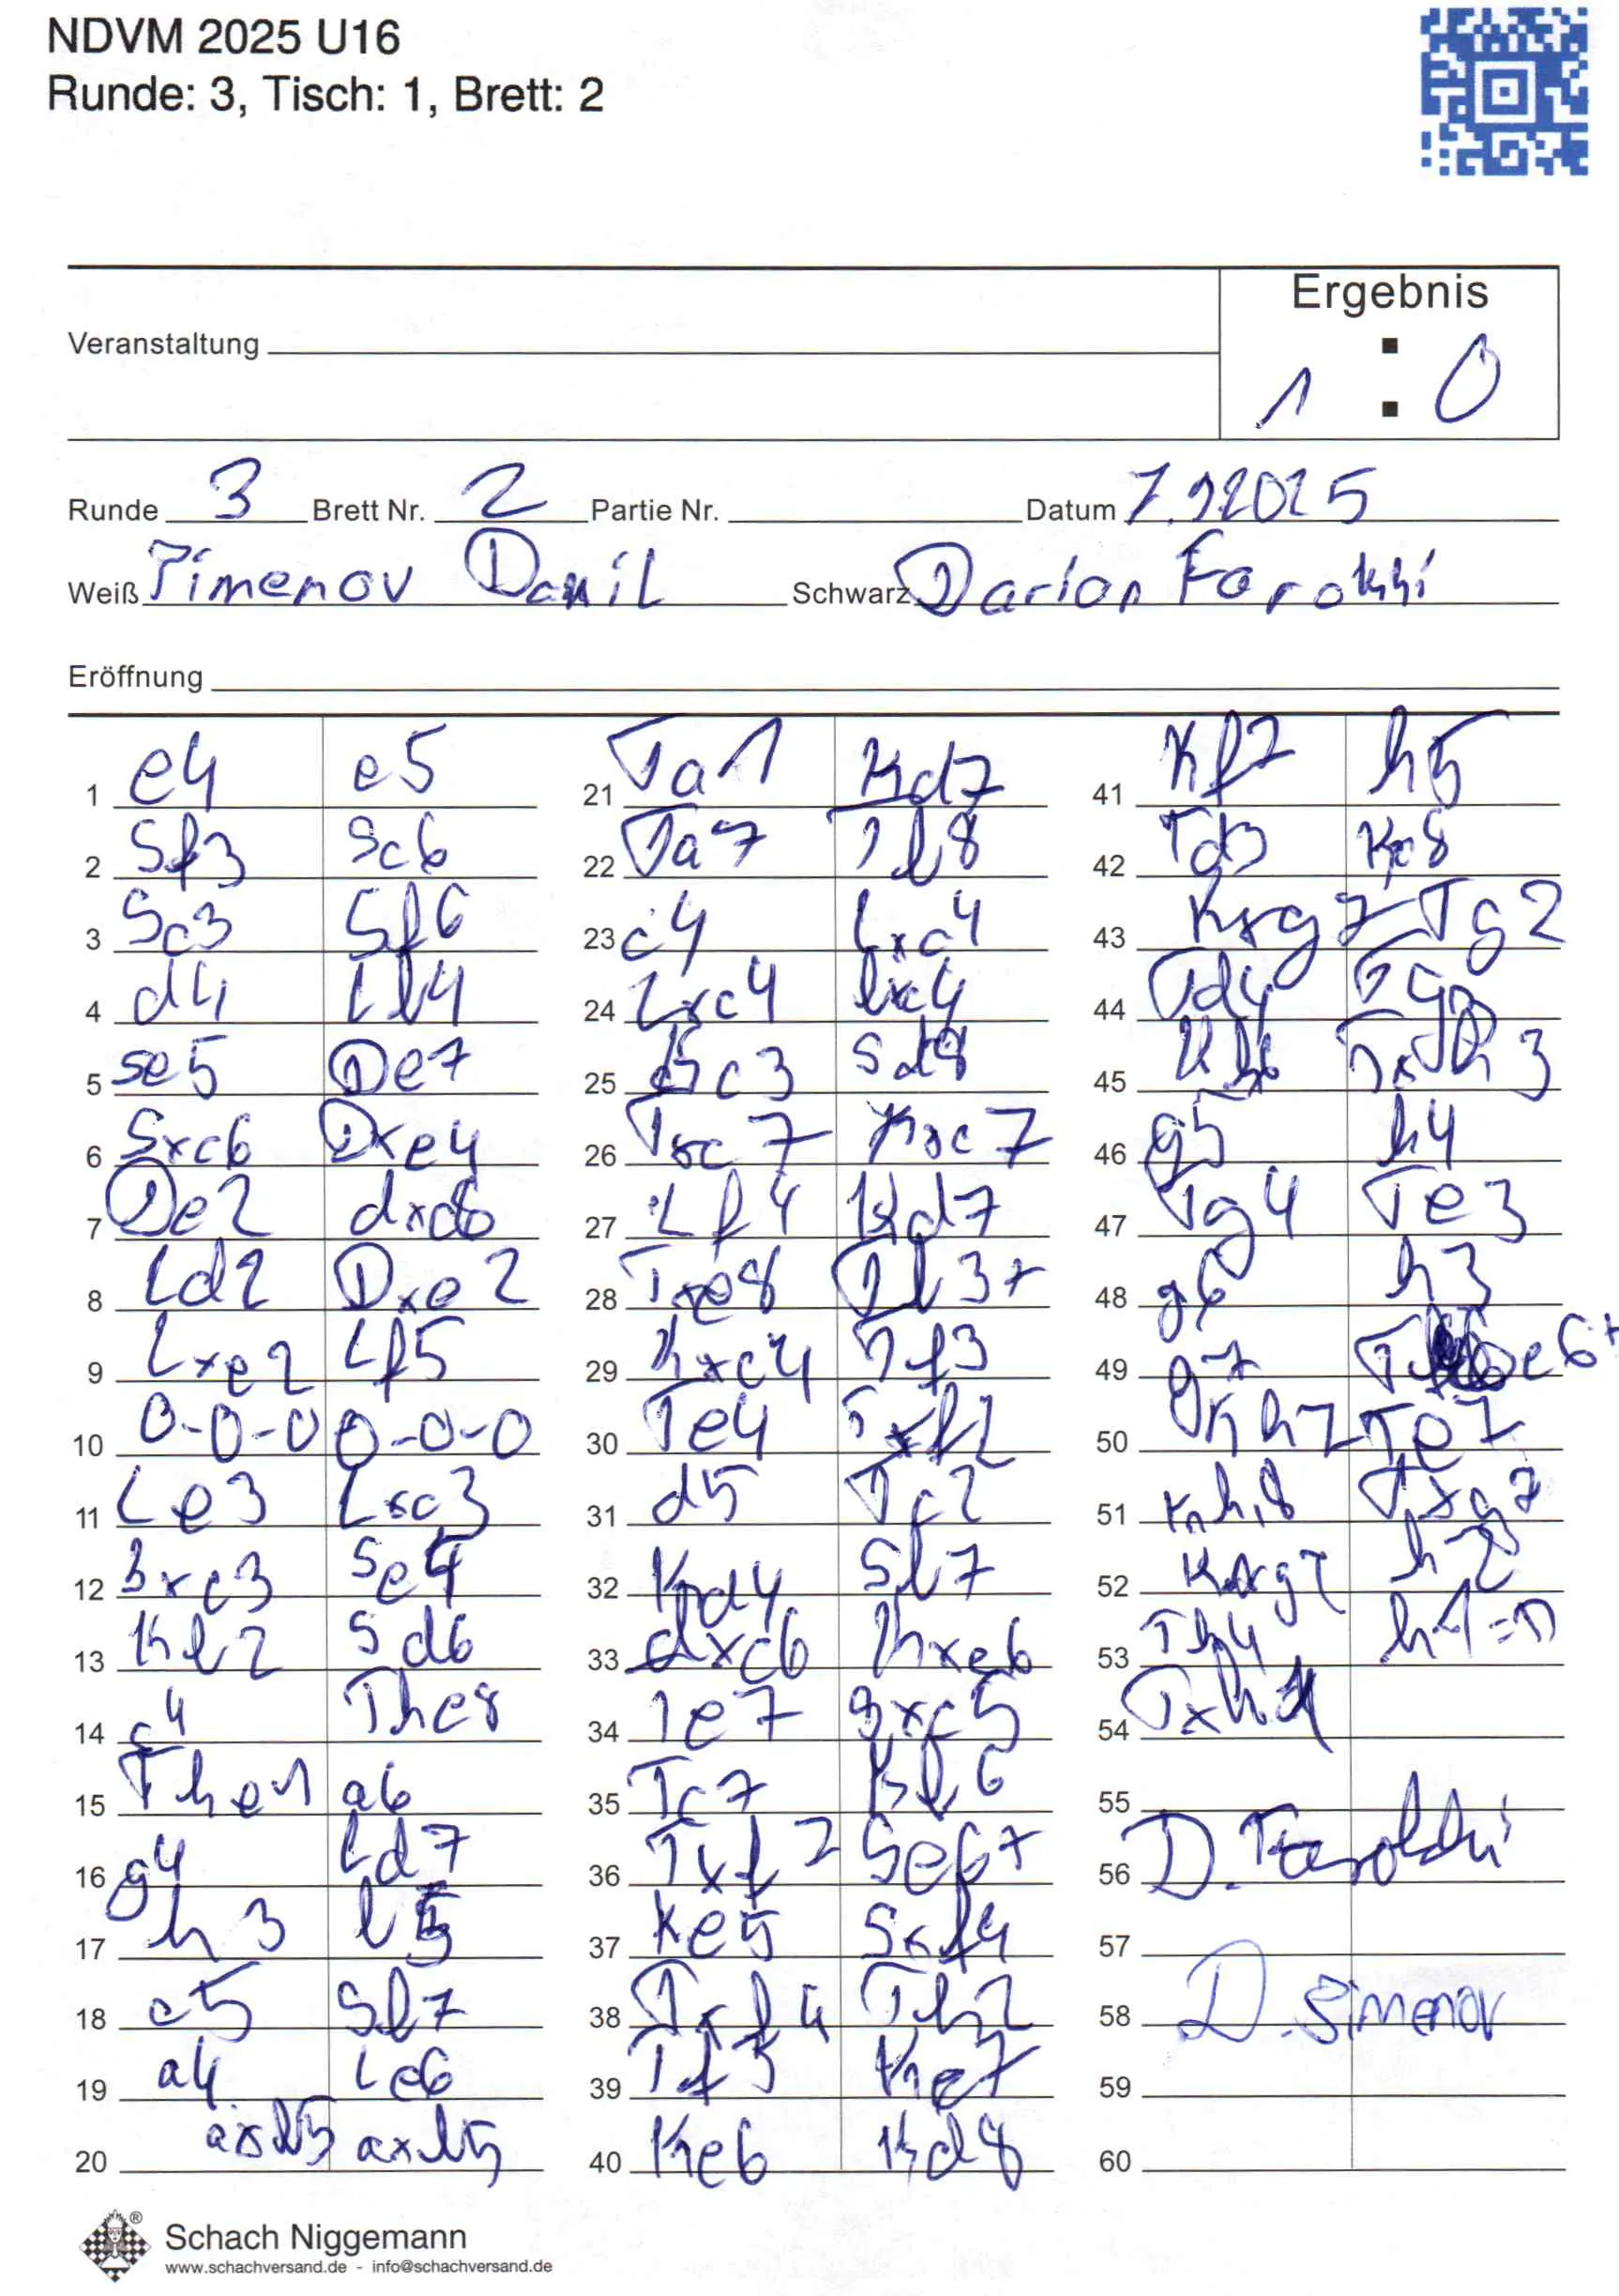 NDVM 2025 U16
Runde: 3, Tisch: 1, Brett: 2
Ergebnis
Veranstaltung
1 : 0
Runde 3 Brett Nr. 2 Partie Nr. Datum 7.12025
Weiß Timenov Danil Schwarz Darion Farokhi
Eröffnung
1 e4 e5
2 Sf3 Sc6
3 Sc3 Sf6
4 d4 Lb4
5 se5 De7
6 Sxc6 Dxe4
7 De2 dxc6
8 Ld2 Dxe2
9 Lxe2 Lf5
10 0-0-0 0-0-0
11 Le3 Lxc3
12 bxc3 Se4
13 Kb2 Sd6
14 c4 The8
15 The1 a6
16 g4 Ld7
17 h3 b5
18 c5 Sb7
19 a4 Le6
20 axb5 axb5
21 Ta1 Kd7
22 Ta7 Tb8
23 c4 Lxc4
24 Lxc4 bxc4
25 Kc3 Sd8
26 Txc7 Kxc7
27 Lf4 Kd7
28 Txe8 Tb3+
29 Kxc4 Tf3
30 Te4 Txf2
31 d5 Tc2
32 Kd4 Sb7
33 dxc6 Kxc6
34 Te7 Sxc5
35 Tc7 Kb6
36 Txf7 Se6+
37 Ke5 Sxf4
38 Txf4 Th2
39 Tf3 Kc7
40 Ke6 Kd8
41 Kf7 h5
42 Td3 Kc8
43 Kxg7 Tg2
44 Td4 Tg3
45 Kh6 Txh3
46 g5 h4
47 Tg4 Te3
48 g6 h3
49 g7 Te6+
50 Kh7 Te7
51 Kh8 Txg7
52 Kxg7 h2
53 Th4 h1=D
54 Txh1
55
56 D. Farokhi
57
58 D. Simenov
59
60
Schach Niggemann
www.schachversand.de - info@schachversand.de